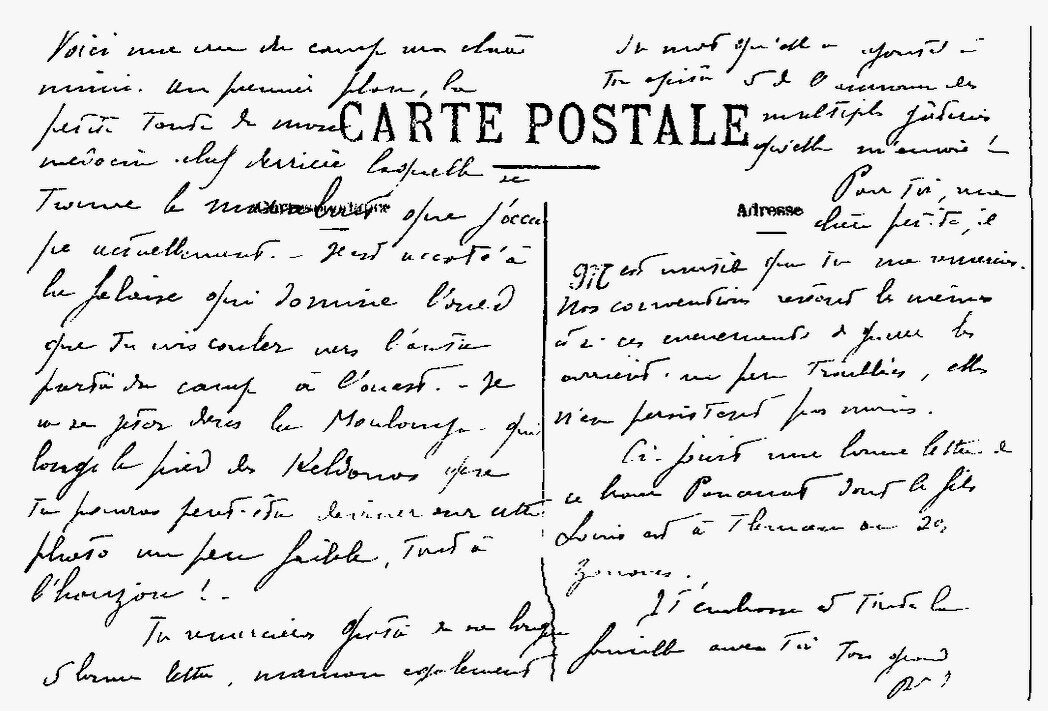 Voici une vue du camp ma chère
mimi. Au premier plan, la
petite tente de mon
médecin chef derrière laquelle se
trouve le que j'occu
pe actuellement. - Il est accoté à
la falaise qui domine l'oued
que tu vois couler vers l'autre
partie du camp à l'ouest. - Je
va se jeter dans la Moulouya qui
longe le pied des Kebdanas que
tu pourras peut-être deviner sur cette
photo un peu faible, tout à
l'horizon ! -
Tu remercieras de sa longue
& bonne lettre, maman également
du mot qu'elle a ajouté à
ton & de l'annonce des
multiples gâteries
qu'elle m'envoie !
CARTE POSTALE
Correspondance
Adresse
Pour toi, ma
chère petite, il
M est inutile que tu me remercies.
Nos conventions restent les mêmes
& si ces évènements de guerre les
arrient un peu troublées, elles
n'en persistent pas moins.
Ci-joint une bonne lettre de
ce brave dont le fils
Louis est à Tlemcen au 2e
zouaves.
Je t'embrasse et toute la
famille avec toi Ton grand